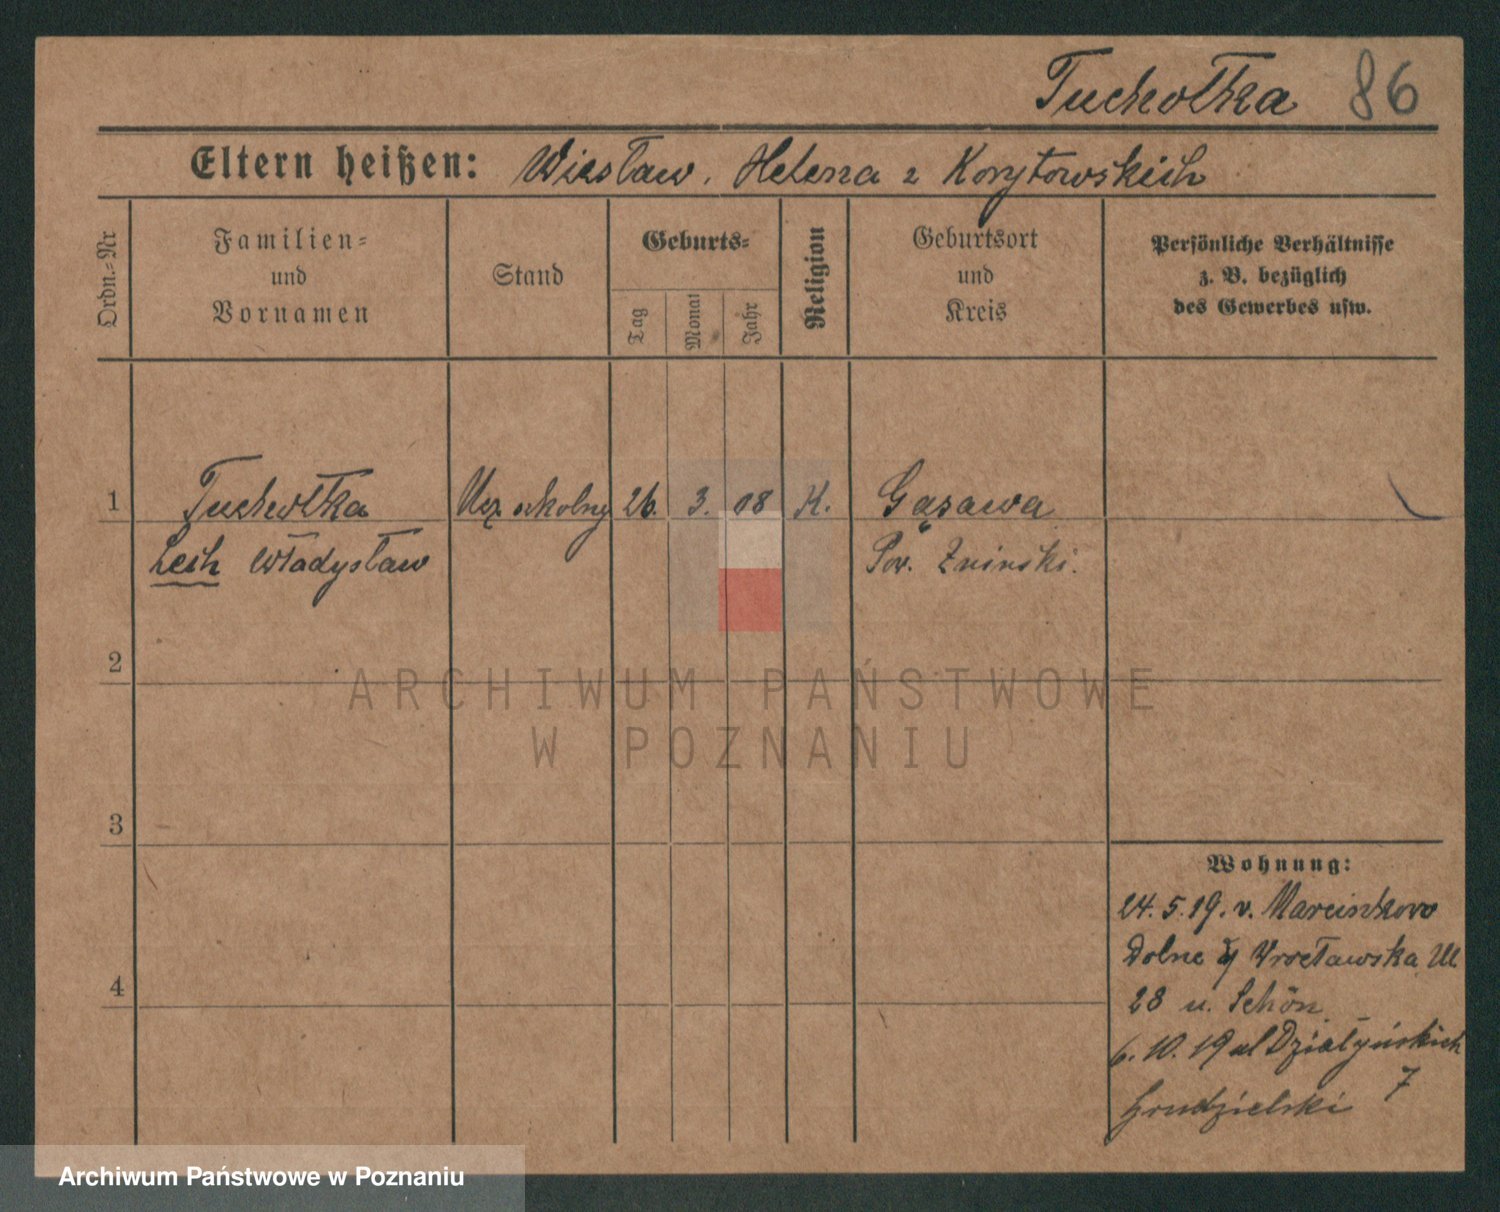 Tuchołka 86
Eltern heißen: Wiesław, Helena z Korytowskich
Ordn.-Nr
Familien- und Vornamen
Stand
Geburts-
Tag
Monat
Jahr
Religion
Geburtsort und Kreis
Persönliche Verhältnisse z. B. bezüglich des Gewerbes usw.
1 Tuchołka Ucz. szkolny 26. 3. 08 K. Gąsawa
Lech Władysław Pow. Żniński.
2
3
4
Wohnung:
24. 5. 19. v. Marcinkowo
Dolne Wrocławska Ul.
28 u. Schön
6. 10. 19 ul Działyńskich
7
Grudzielski
ARCHIWUM PAŃSTWOWE
W POZNANIU
Archiwum Państwowe w Poznaniu